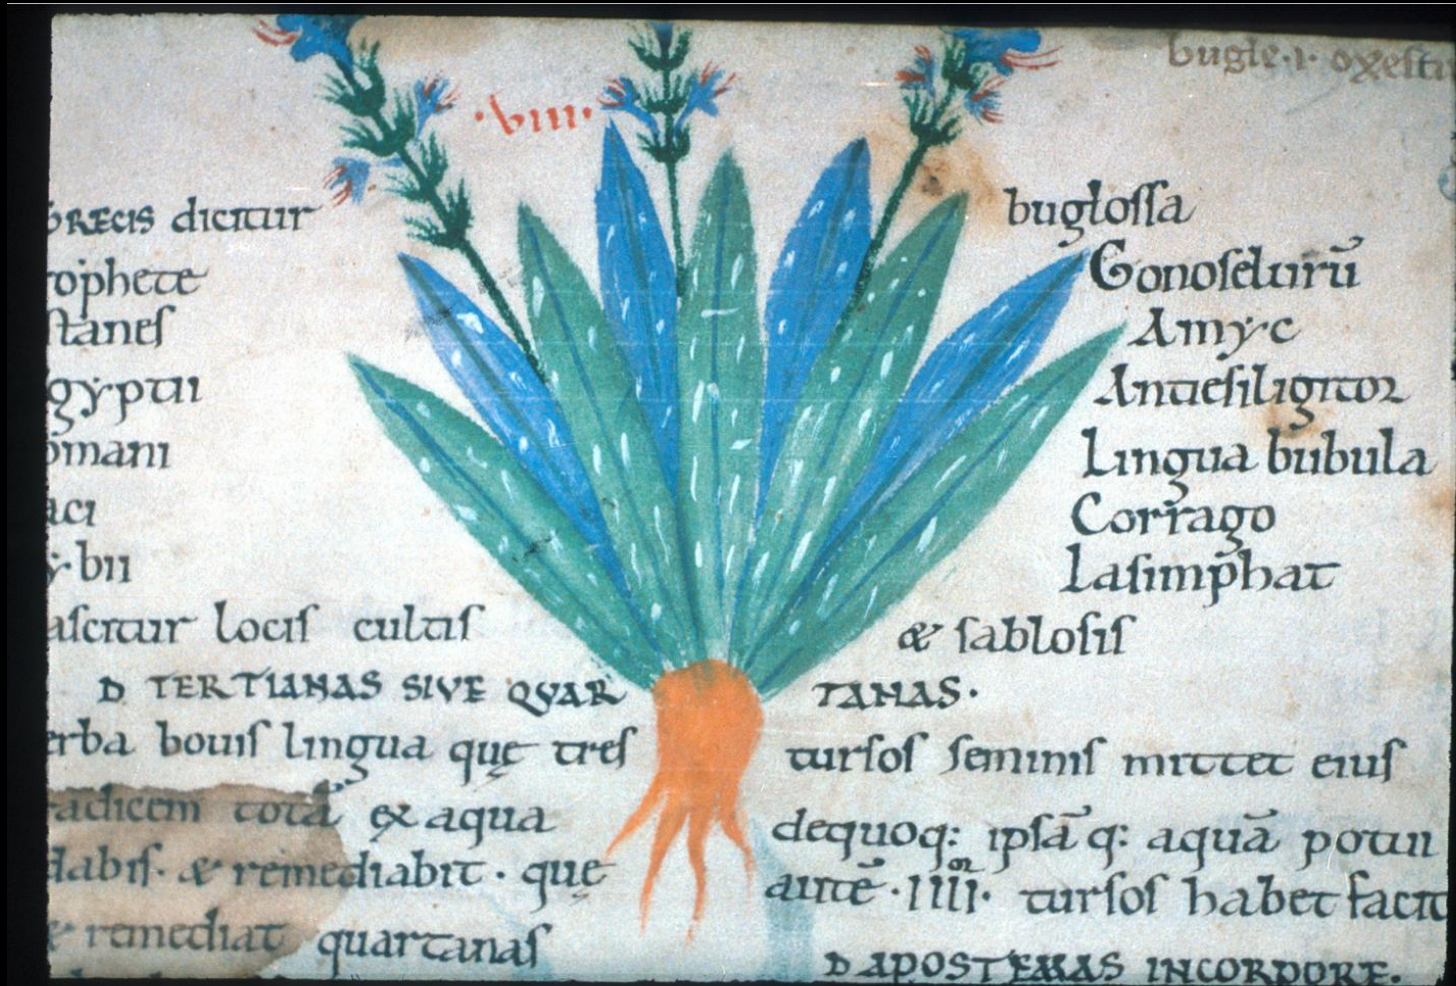 bugle·i· oxest
·viii·
GRECIS dicitur buglossa
rophete Gonoseluirū
stanes Amyc
gyptii Antiesiligitor
omani Lingua bubula
aci Corrago
y·bii Lasimphat
ascitur locis cultis & sablosis
D TERTIANAS SIVE QVAR TANAS·
erba bouis lingua quę tres tursos seminis mittet eius
radicem totā ex aqua dequoq: ipsā q: aquā potui
dabis· & remediabit · quę autē ·IIII· or tursos habet facit
& remediat quartanas
D APOSTEMAS INCORPORE.